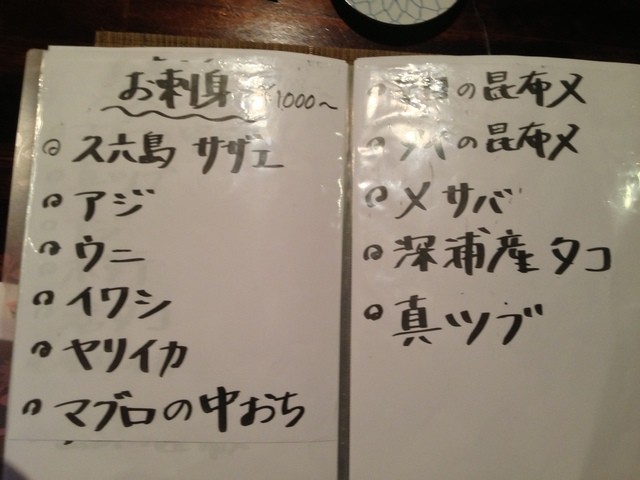 お刺身 ¥1000〜
久六島 サザエ
アジ
ウニ
イワシ
ヤリイカ
マグロの中おち
の昆布〆
の昆布〆
〆サバ
深浦産タコ
真ツブ